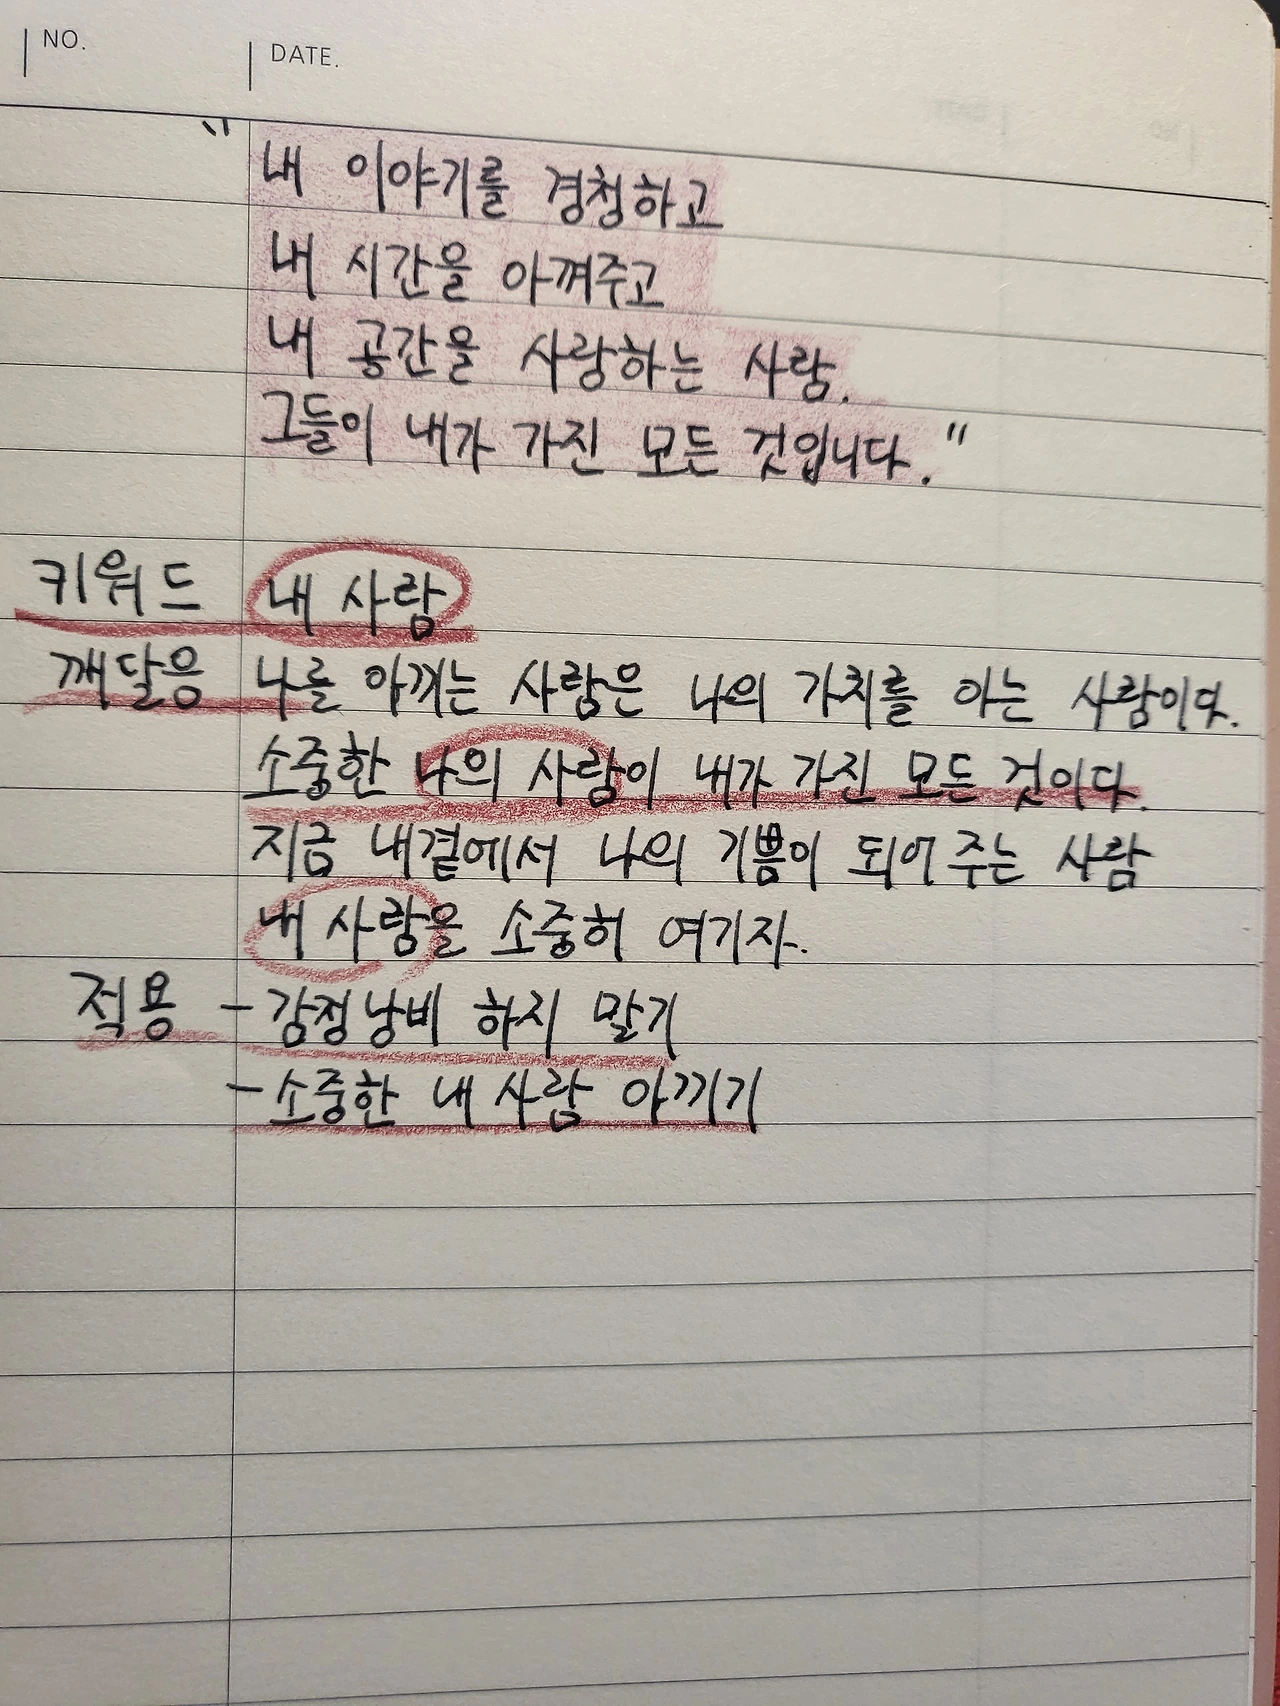 NO. DATE.
"내 이야기를 경청하고
내 시간을 아껴주고
내 공간을 사랑하는 사람.
그들이 내가 가진 모든 것입니다."
키워드 내 사람
깨달음 나를 아끼는 사람은 나의 가치를 아는 사람이다.
소중한 나의 사람이 내가 가진 모든 것이다.
지금 내곁에서 나의 기쁨이 되어주는 사람
내 사람을 소중히 여기자.
적용 - 감정낭비 하지 말기
- 소중한 내 사람 아끼기